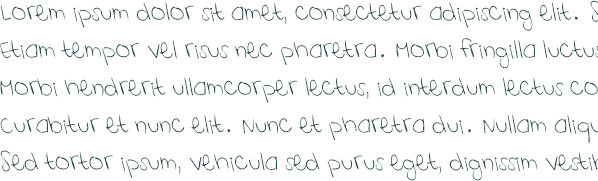 Lorem ipsum dolor sit amet, consectetur adipiscing elit. S
Etiam tempor vel risus nec pharetra. Morbi fringilla luctus
Morbi hendrerit ullamcorper lectus, id interdum lectus co
curabitur et nunc elit. Nunc et pharetra dui. Nullam aliqu
Sed tortor ipsum, vehicula sed purus eget, dignissim vestib